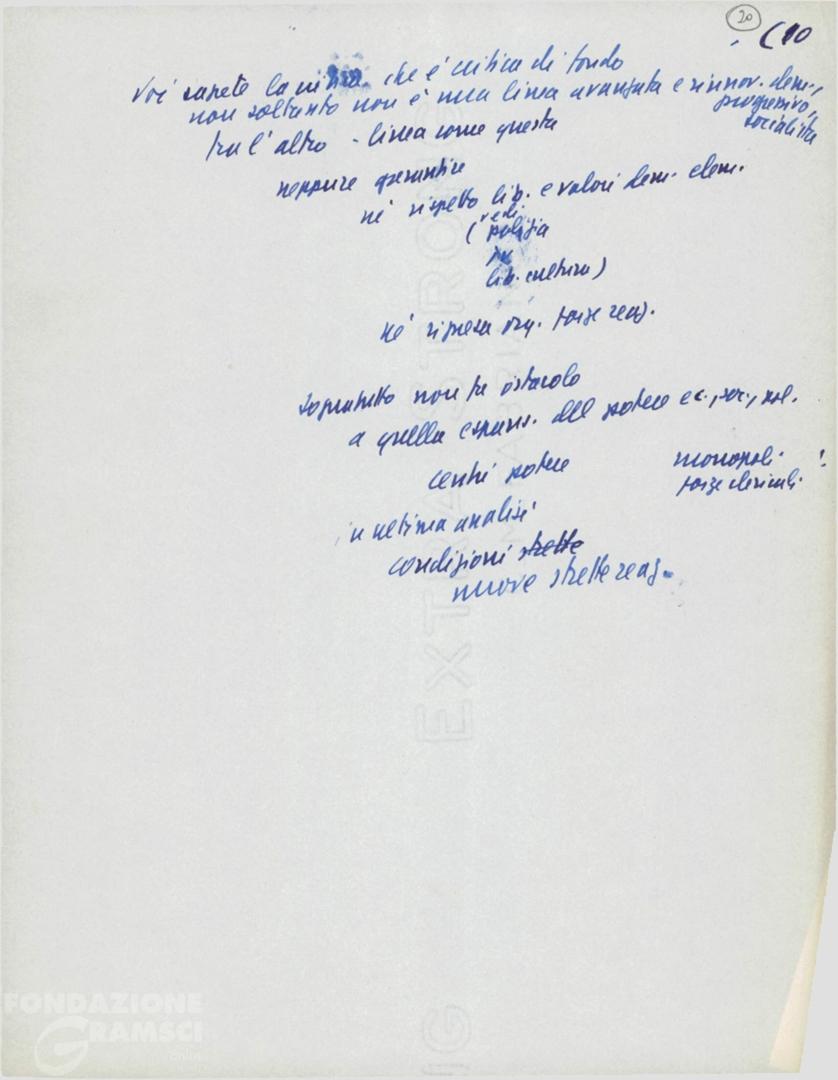 20
C 10
Voi sapete la ns/ra. che è critica di fondo
non soltanto non è una linea avanzata e rinnov. dem.,
progressivo,
socialista
tra l'altro - linea come questa
neppure garantire
né rispetto lib. e valori dem. elem.
(vedi
polizia
lib. cultura)
né ripresa org. forze reaz.
sopratutto non fa ostacolo
a quella espans. del potere ec., soc., pol.
centri potere monopoli !
forze clericali
in ultima analisi
condizioni strette
nuove strette reaz.
EXTRA STRONG
FABRIANO
FONDAZIONE
GRAMSCI